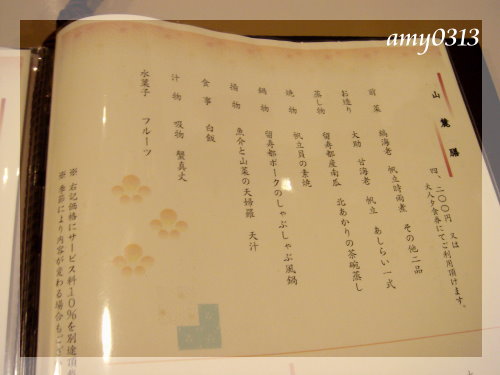 山麓膳 四、二〇〇円 又は
大人夕食券にてご利用頂けます。
前菜 縞海老 帆立時雨煮 その他二品
お造り 大助 甘海老 帆立 あしらい一式
蒸し物 留寿都産南瓜 北あかりの茶碗蒸し
焼物 帆立貝の素焼
鍋物 留寿都ポークのしゃぶしゃぶ風鍋
揚物 魚介と山菜の天婦羅 天汁
食事 白飯
汁物 吸物 蟹真丈
水菓子 フルーツ
※ 右記価格にサービス料10%を別途頂
※ 季節により内容が変わる場合もござ
amy0313